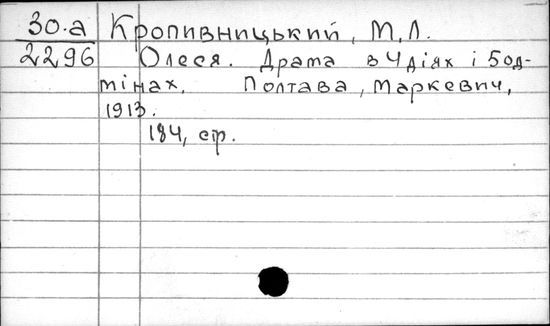 30.a Кропивницький, М.Л.
2296 Олеся. Драма в 4 діях і 5 од-
мінах. Полтава, Маркевич,
1913.
184, стр.